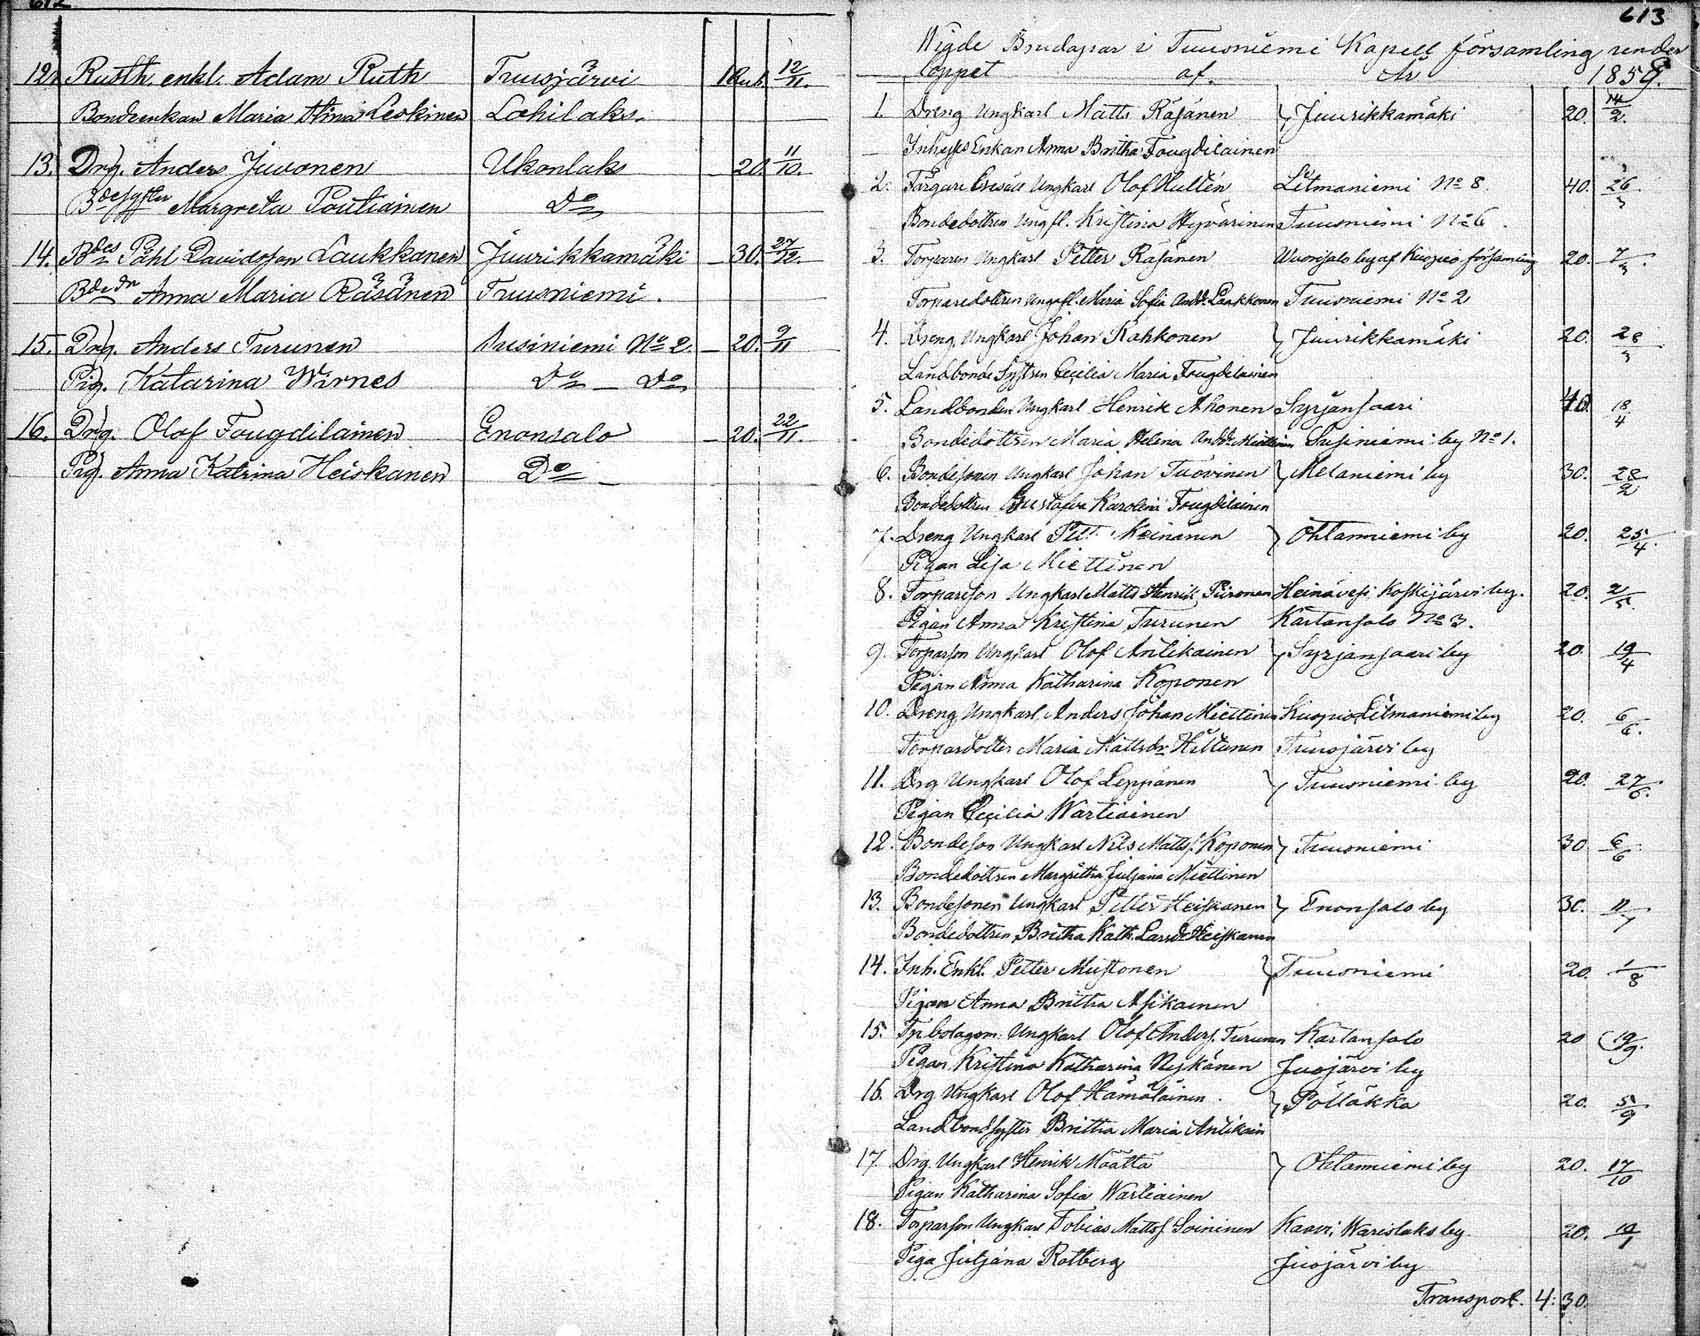 612
12. Rusth. enkl. Adam Ruth Tuusjärvi 1 Rub. 12/11.
Bondeenkan Maria Stina Leskinen Lohilaks.
13. Drg. Anders Juvonen Ukonlaks 20. 11/10.
Bdesyster Margreta Poutiainen Do
14. Bdes. Påhl Davidsson Laukkanen Juurikkamäki 30. 27/12.
Bdedr Anna Maria Räsänen Tuusniemi.
15. Drg. Anders Turunen Susiniemi No 2. 20. 9/11
Pig. Katarina Wirnes Do Do
16. Drg. Olof Fougdilainen Enonsalo 20. 22/11.
Pig. Anna Katrina Heiskanen Do
613
Wigde Brudapar i Tuusniemi Kapell församling under
loppet af År 1859.
1. Dreng Ungkarl Matts Räsänen } Juurikkamäki 20. 14/2.
Inhyses Enkan Anna Britha Fougdilainen
2. Färgare Ungkarl Olof Hultén Litmaniemi No 8. 40. 26/3
Bondedottren Ungfl. Kristina Hyvärinen Tuusniemi No 6.
3. Torparen Ungkarl Petter Räsänen Wuorisalo by af Kuopio församling 20. 7/3.
Torparedottren Ungfl. Maria Sofia Andd. Laakkonen Tuusniemi No 2
4. Dreng Ungkarl Johan Kahkonen } Juurikkamäki 20. 28/3
Landbonde Systren Cecilia Maria Fougdilainen
5. Landbonden Ungkarl Henrik Ahonen Syrjänsaari 40. 18/4
Bondedottren Maria Helena Andd. Miettinen Susiniemi by No 1.
6. Bondesonen Ungkarl Johan Tuovinen } Melaniemi by 30. 28/2
Bondedottren Gustafva Karolina Fougdilainen
7. Dreng Ungkarl Pet. Meinänen } Ohtanniemi by 20. 25/4.
Pigan Lisa Miettinen
8. Torparson Ungkarl Matts Henrik Piironen Heinävesi Koskijärvi by. 20. 2/5.
Pigan Anna Kristina Turunen Kartansalo No 3.
9. Torparson Ungkarl Olof Antikainen } Syrjänsaari by 20. 19/4
Pigan Anna Katharina Koponen
10. Dreng Ungkarl Anders Johan Miettinen Kuopio Litmaniemi by 20. 6/6.
Torpardotter Maria Mattsdr. Hiltunen Tuusjärvi by
11. Drg Ungkarl Olof Leppänen } Tuusniemi by 20. 27/6.
Pigan Cecilia Wartiainen
12. Bondeson Ungkarl Nils Mattss. Koponen } Tuusniemi 30. 6/6
Bondedottren Margretha Juljana Miettinen
13. Bondesonen Ungkarl Petter Heiskanen } Enonsalo by 30. 11/7
Bondedottren Britha Kath. Larsdr. Heiskanen
14. Inh. Enkl. Petter Mustonen } Tuusniemi 20. 1/8
Pigan Anna Britha Asikainen
15. Tp. bolagsm. Ungkarl Olof Anders. Turunen Kartansalo 20 19/9.
Pigan Kristina Katharina Niskanen Juojärvi by
16. Drg Ungkarl Olof Hämäläinen. } Pölläkkä 20. 5/9
Landbondsyster Britha Maria Antikain
17. Drg. Ungkarl Henrik Määttä } Ohtanniemi by 20. 17/10
Pigan Katharina Sofia Wartiainen
18. Torparson Ungkarl Tobias Mattss. Soininen Kaavi, Warislaks by 20. 19/1
Piga Juljana Rotberg Juojärvi by
Transport. 4: 30.